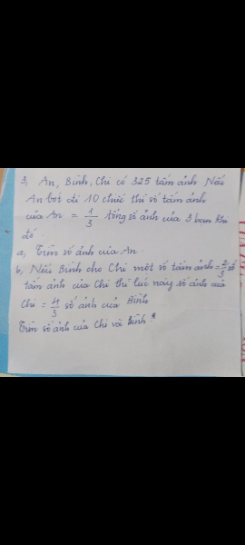 3, An, Bình, Chi có 325 tấm ảnh Nếu
An bớt đi 10 chiếc thì số tấm ảnh
của An = 1/3 tổng số ảnh của 3 bạn khi
đó.
a, Tìm số ảnh của An
b, Nếu Bình cho Chi một số tấm ảnh = số
tấm ảnh của Chi thì lúc này số ảnh của
Chi = 4/3 số ảnh của Bình
Tìm số ảnh của Chi và Bình